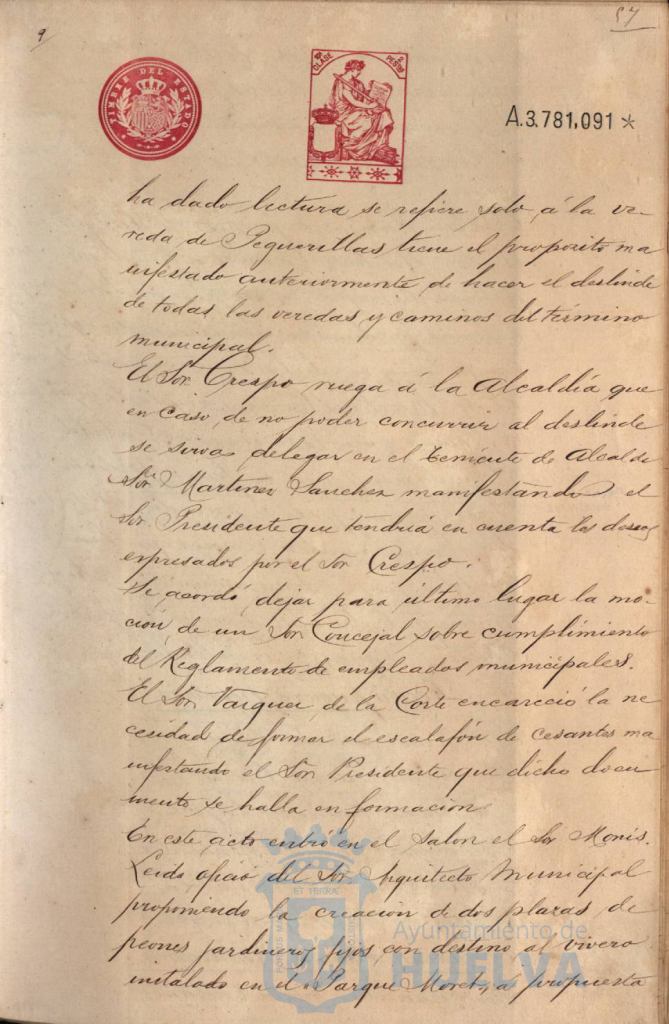 9
57
TIMBRE DEL ESTADO
10ª CLASE 2 PESETAS
A.3.781,091*
ha dado lectura se refiere solo á la ve-
reda de Peguerillas tiene el proposito ma
nifestado anteriormente de hacer el deslinde
de todas las veredas y caminos del término
municipal.
El Sor. Crespo ruega á la Alcaldía que
en caso de no poder concurrir al deslinde
se sirva delegar en el Teniente de Alcalde
Sor. Martinez Sanchez manifestando el
Sor. Presidente que tendria en cuenta los deseos
expresados por el Sor Crespo.
Se acordó dejar para último lugar la mo-
ción de un Sor Concejal sobre cumplimiento
del Reglamento de empleados municipales.
El Sor Vazquez de la Corte encareció la ne
cesidad de formar el escalafón de cesantes ma
nifestando el Sor Presidente que dicho docu
mento se halla en formación.
En este acto entró en el Salon el Sor Monis.
Leido oficio del Sor Arquitecto Municipal
proponiendo la creacion de dos plazas de
peones jardineros fijos con destino al vivero
instalado en el Parque Moret, á propuesta
Ayuntamiento de
HUELVA